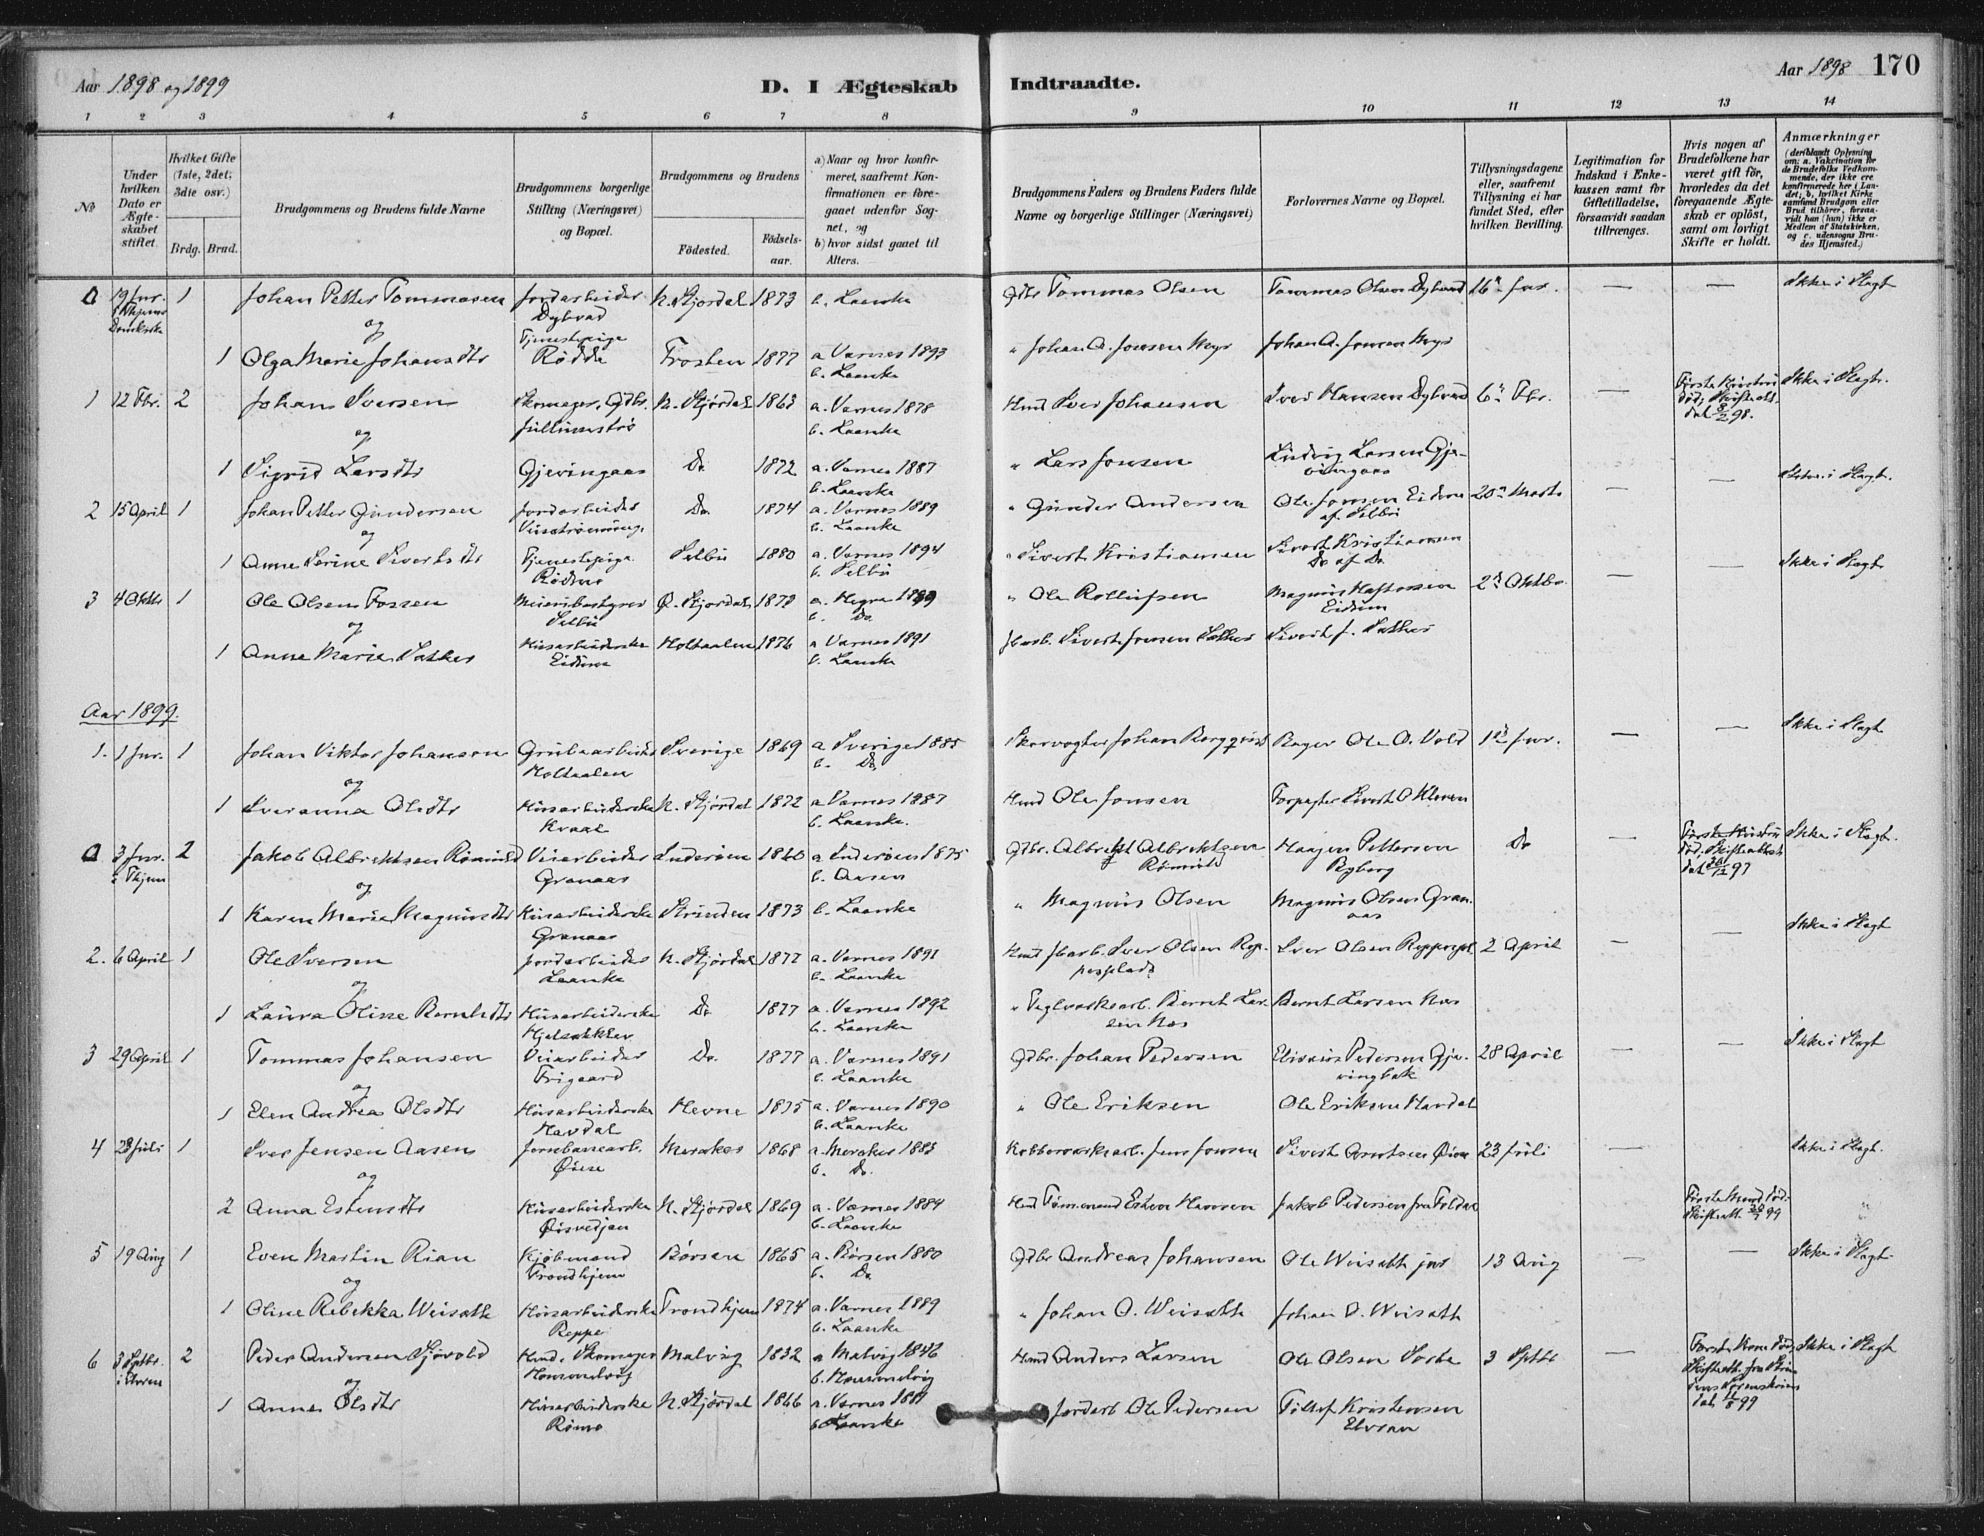 Aar 1898 og 1899
D. I Ægteskab Indtraadte.
Aar 1898 170
1 2 3 4 5 6 7 8 9 10 11 12 13 14
№
Under hvilken Dato er Ægteskabet stiftet.
Hvilket Gifte (1ste, 2det; 3die osv.)
Brdg. Brud.
Brudgommens og Brudens fulde Navne
Brudgommens borgerlige Stilling (Næringsvei) og Bopæl.
Brudgommens og Brudens
Fødested. Fødselsaar.
a) Naar og hvor konfirmeret, saafremt Konfirmationen er foregaaet udenfor Sognet, og
b) hvor sidst gaaet til Alters.
Brudgommens Faders og Brudens Faders fulde Navne og borgerlige Stillinger (Næringsvei)
Forlovernes Navne og Bopæl.
Tillysningsdagene eller, saafremt Tillysning ei har fundet Sted, efter hvilken Bevilling.
Legitimation for Indskud i Enkekassen samt for Giftetilladelse, forsaavidt saadan tiltrænges.
Hvis nogen af Brudefolkene har været gift før, hvorledes da det foregaaende Ægteskab er opløst, samt om lovligt Skifte er holdt.
Anmærkninger
(deriblandt Oplysning om: a. Vakcination for de Brudefolks Vedkommende, der ikke ere konfirmerede her i Landet; b. hvilket Kirkesamfund Brudgom eller Brud tilhører, forsaavidt han (hun) ikke er Medlem af Statskirken, og c. udensogns Brudes Hjemsted.)
a 19 Jnr. 1 Johan Petter Tommasen Jordarbeider Dybvad N. Stjørdal 1873 b. Laanke Gdbr Tommas Olsen Tommas Olsen Dybvad 16de Jnr. — — Ikke i Slægt
og
1 Olga Marie Johansdtr Tjenestepige Rødde Frosten 1877 a Værnes 1893 b. Laanke " Johan A. Jonsen Myr Johan A. Jonsen Myr
1 12 Fbr. 2 Johan Iversen Skomager, Gdbr. N. Stjørdal 1863 a. Værnes 1878 b. Laanke Hmd Iver Johansen Iver Hansen Dybvad 6te Fbr. — Første Kristin død; Skifteatt. dat 98. Ikke i Slægt.
og
1 Sigrid Larsdtr Gjevingaas Do 1872 a. Værnes 1887 b. Laanke " Lars Jonsen Ludvig Larsen Gjevingaas
2 15 April 1 Johan Petter Gundersen Jordarbeider Do 1874 a. Værnes 1889 b. Laanke " Gunder Andersen Ole Jonsen Eidum af Selbu 20de Marts — — Ikke i Slægt.
og
1 Anne Serine Sivertsdtr Tjenestepige Selbu 1880 a. Værnes 1894 b. Selbu " Sivert Kristiansen Sivert Kristiansen Do af Do
3 4 Oktb 1 Ole Olsen Fossen Meieribestyrer Selbu Ø. Stjørdal 1872 a. Hegra 1889 b. Do " Ole Rollufsen Magnus Hastassen Eidum 2d Oktbr — — Ikke i Slægt
og
1 Anne Marie Sakker Husarbeiderske Eidum Holtaalen 1876 a Værnes 1891 b. Laanke Jbarb. Sivert Jonsen Sakker Sivert J. Sakker
Aar 1899.
1. 1 Jnr. 1 Johan Viktor Johansen Grubearbeider Holtaalen Sverige 1869 a Sverige 1885 b. Do Skovvogter Johan Bergqvist Bager Ole O. Vold 1ste Jnr. — — Ikke i Slægt
og
1 Iveranna Olsdtr Husarbeiderske Kvaal N. Stjørdal 1872 a Værnes 1887 b. Laanke. Hmd Ole Jonsen Forpagter Sivert O Kleven
a 3 Jnr. 2 Jakob Albrektsen Rømuld Veiarbeider Granaas Inderøen 1860 a Inderøen 1875 b. Aasen Gdbr. Albrekt Albrektsen Rømuld Haagen Pettersen Ryberg Do — Første Hustru død, Skifteattest dat 97 Ikke i Slægt.
og
1 Karen Marie Magnusdtr Husarbeiderske Granaas Strinden 1873 b. Laanke " Magnus Olsen Magnus Olsen Granaas
2. 6 April 1 Ole Iversen Jordarbeider Laanke N. Stjørdal 1877 a. Værnes 1891 b. Laanke Hmd Jbarb. Iver Olsen Reppesplads Iver Olsen Reppespl. 2 April — — Ikke i Slægt
og
1 Laura Oline Berntsdtr Husarbeiderske Do 1877 a. Værnes 1892 b. Laanke " Teglværksarb. Bernt Larsen Næs Bernt Larsen Næs
3 29 April 1 Tommas Johansen Veiarbeider Frigaard Do. 1877 a. Værnes 1891 b. Laanke Gdbr. Johan Pedersen Elisæus Pedersen Gjevingbak 28 April — — Ikke i Slægt
og
1 Elen Andrea Olsdtr Husarbeiderske Mardal Hevne 1875 a. Værnes 1890 b. Laanke " Ole Eriksen Ole Eriksen Mardal
4 23 Juli 1 Iver Jensen Aasen Jernbanearb. Øien Meraker 1868 a. Meraker 1883 b. Do. Kobberværksarb. Jens Jonsen Sivert Arntsen Øien 23 Juli — Ikke i Slægt.
og
2 Anna Estensdtr Husarbeiderske N. Stjørdal 1869 a. Værnes 1884 b. Laanke Hmd Tømmermd Esten Hansen Jakob Pedersen fra Foldal Første Mand død. Skifteatt. 99 "
5 19 Aug 1 Even Martin Rian Kjøbmand Trondhjem Børsen 1865 a. Børsen 1880 b. Do Gdbr Andreas Johansen Ole Weisæth jnr 13 Aug — — Ikke i Slægt
og
1 Oline Rebekka Weisæth Husarbeiderske Reppe Trondhjem 1874 a. Værnes 1889 b. Laanke " Johan O. Weisæth Johan O. Weisæth
6 3 Sptbr. 2 Peder Andersen Sjøvold Hmd. Skomager Hommelvig Malvig 1832 a Malvig 1846 b. Hommelvig Hmd Anders Larsen Ole Olsen Sorte 3 Sptbr — Første Kone død Ikke i Slægt
og
1 Anne Olsdtr Husarbeiderske Rømo N. Stjørdal 1866 a. Værnes 1881 b Laanke Jordarb Ole Pedersen Tollef Kristensen Elvran